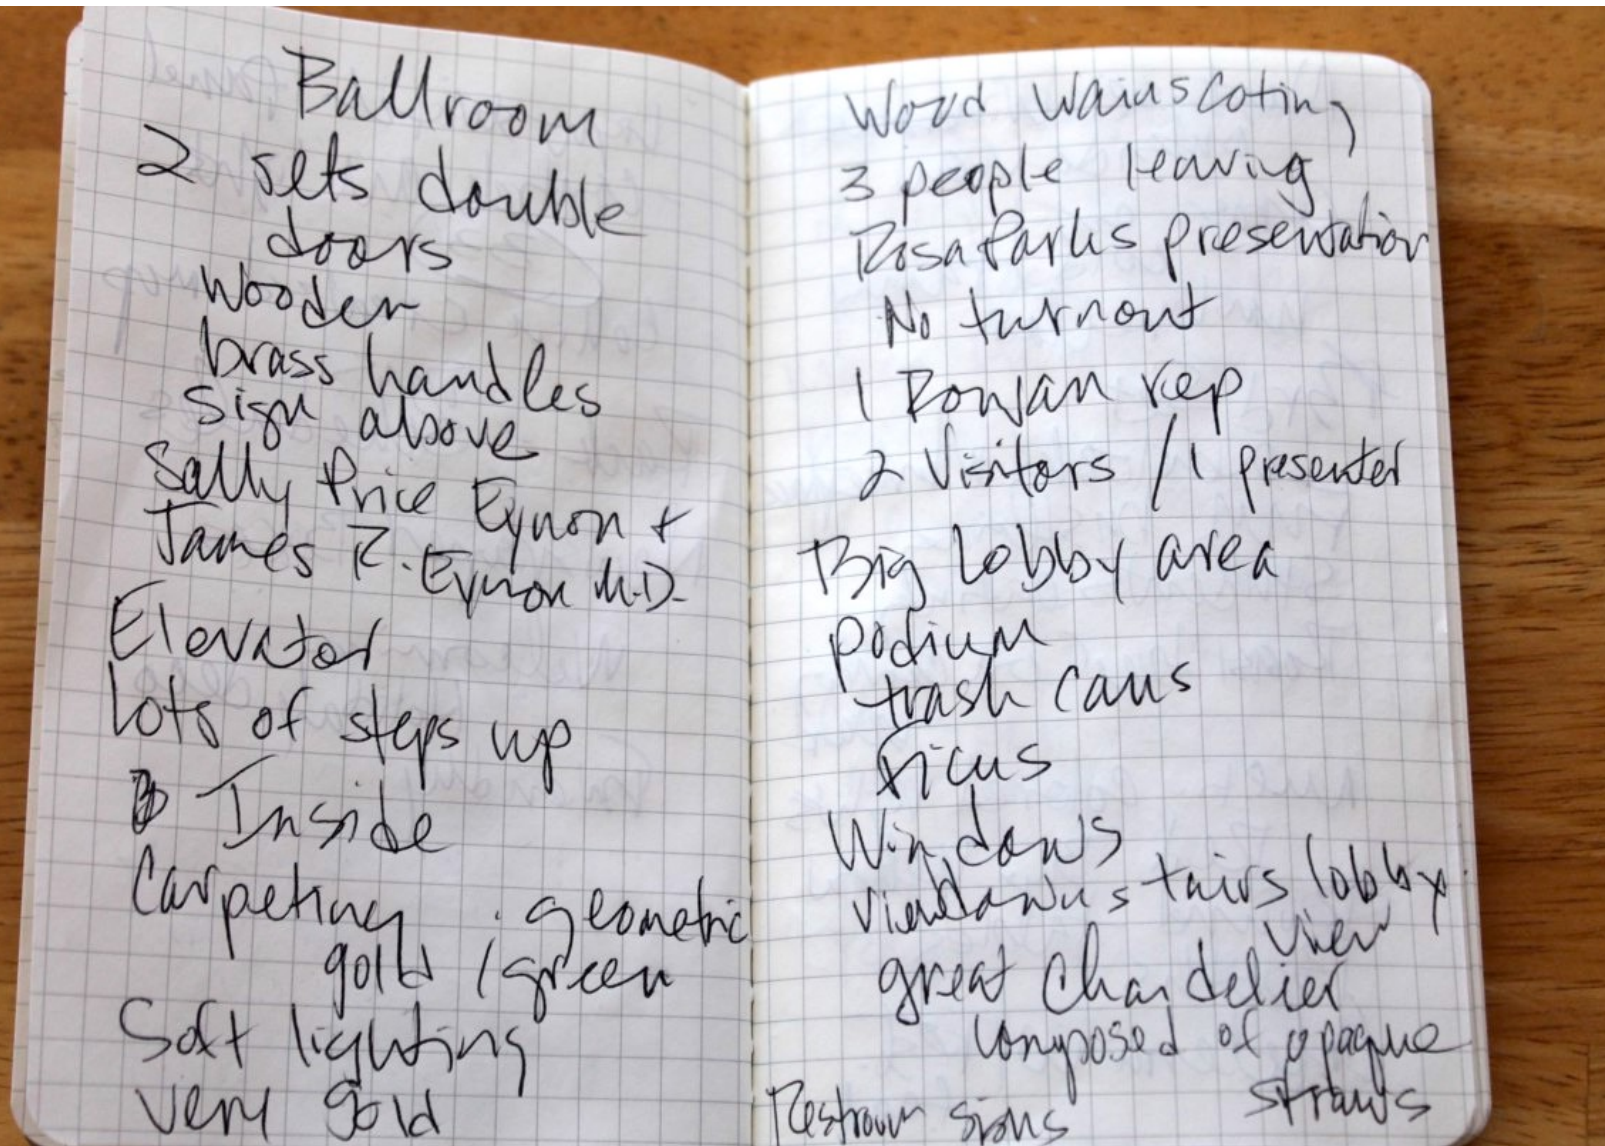 Ballroom
2 sets double
doors
Wooden
brass handles
Sign above
Sally Price Eynon +
James R. Eynon M.D.
Elevator
lots of steps up
B Inside
Carpeting . geometric
gold / green
Soft lighting
very gold
Wood Wainscoting
3 people leaving
Rosa Parks presentation
No turnout
1 Rowan rep
2 Visitors / 1 presenter
Big lobby area
podium
trash cans
ficus
Windows
view downstairs lobby
view
great Chandelier
composed of opaque
straws
Restroom signs